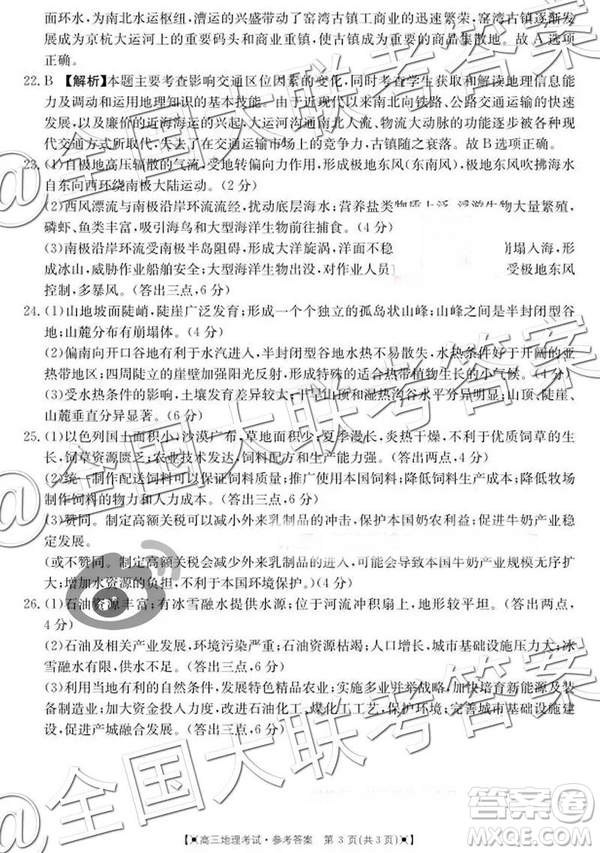 而环水，为南北水运枢纽，漕运的兴盛带动了窑湾古镇工商业的兴盛与发展，窑湾古镇因此发展
成为京杭大运河上的重要码头和商业重镇，成为重要的商品集散地。故A选项
正确。
22. B 【解析】本题主要考查影响交通区位因素的变化，同时考查学生获取和解读地理信息能
力及调动和运用地理知识的基本技能。由于历史因素，以来南北向铁路、公路交通运输的快速
发展，以及廉价的近海海运的兴起，大运河沟通南北人流、物流大动脉的功能逐渐被多种现
代交通方式所取代，失去了在交通运输市场上的竞争力，古镇不在辉煌。故B选项正确。
23. (1)自极地高压辐散的气流，受地转偏向力作用，形成极地东风(东南风)，极地东风吹拂海水
自东向西环绕南极大陆运动。(2分)
(2)西风漂流与南极沿岸环流流经，扰动底层海水；营养盐类物质上泛，浮游生物大量繁殖，
磷虾、鱼类丰富，吸引海鸟和大型海洋生物前往捕食。(4分)
(3)南极沿岸环流受南极半岛阻碍，形成大洋旋涡，洋面不稳 崩塌入海，形
成冰山，威胁作业船舶安全；大型海洋生物出没，对作业人员 受极地东风
控制，多暴风。(答出三点，6分)
24. (1)山地坡面陡峭，陡崖广泛发育；形成一个个独立的孤岛状山峰；山峰之间为半封闭型谷
地；山麓分布有崩塌体。(4分)
(2)偏南向开口谷地有利于水汽进入，半封闭型谷地使热量不易散失，水热条件好于同纬度亚
热带地区；四周陡立的崖壁加强阳光反射，形成特殊的热带植物生长的小气候。(4分)
(3)受水热条件的影响，土壤发育差异较大，干旱山顶和湿热沟谷水平分异明显；山顶、陡崖、
山麓垂直分异显著。(6分)
25. (1)以色列国土面积小，沙漠广布，草地面积少；夏季漫长，炎热干燥，不利于优质饲草的生
长，饲草资源匮乏；农业技术发达，饲料加工技术先进。(答出两点，4分)
(2)统一制作配送饲料可以保证饲料质量；推广使用本国饲料；降低饲料生产成本；降低牧场
制作饲料的物力和人力成本。(答出三点，6分)
(3)赞同。制定高额关税可以减小外来乳制品的冲击，保护本国奶农利益；促进牛奶产业稳定
发展。
(或不赞同。制定高额关税，减少外来乳制品的进入，可能会导致本国牛奶产业规模无序扩
大；增加水资源的负担，不利于本国环境保护。)(4分)
26. (1)石油资源丰富；有冰雪融水注入；位于河流冲积扇上，地形较平坦。(答出两点，
4分)
(2)石油及人进行开发，环境污染严重；石油资源枯竭；人口增长，城市基础设施压力大；冰
雪融水有限。(答出三点，6分)
(3)利用资源优势，积极促进产品深加工；实施多业并举战略，培育创新能源及装备制造产
业；加大资金投入力度，改进石油化工、煤化工工艺，保护环境；完善城市基础设施建
设，促进产城融合发展。(答出三点，6分)
【高三地理考试·参考答案 第3页(共3页)】
@全国大联考答案
答案圈
MXQE.COM